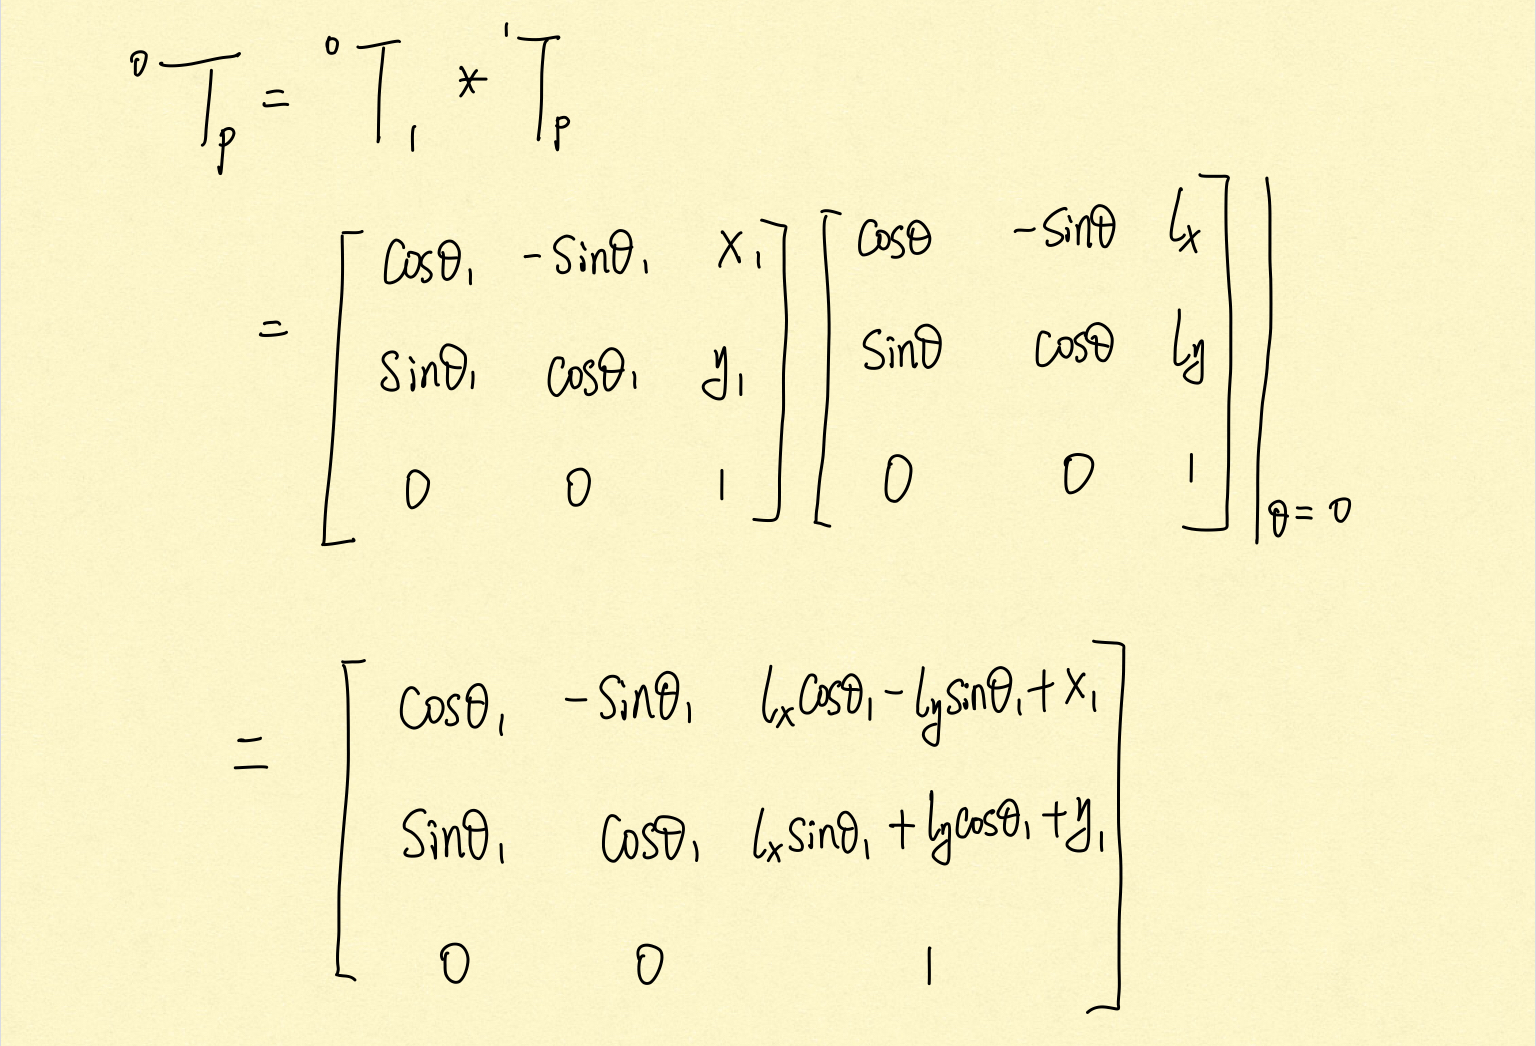 ⁰Tₚ = ⁰T₁ * ¹Tₚ
= [ cosθ₁ -sinθ₁ x₁ ] [ cosθ -sinθ lₓ ] |
[ sinθ₁ cosθ₁ y₁ ] [ sinθ cosθ l_y ] |
[ 0 0 1 ] [ 0 0 1 ] | θ = 0
= [ cosθ₁ -sinθ₁ lₓcosθ₁ - l_y sinθ₁ + x₁ ]
[ sinθ₁ cosθ₁ lₓsinθ₁ + l_y cosθ₁ + y₁ ]
[ 0 0 1 ]